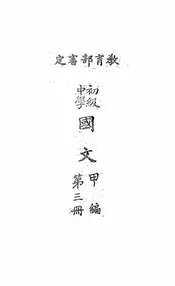 教育部審定
初級
中學
國文
甲編
第三冊